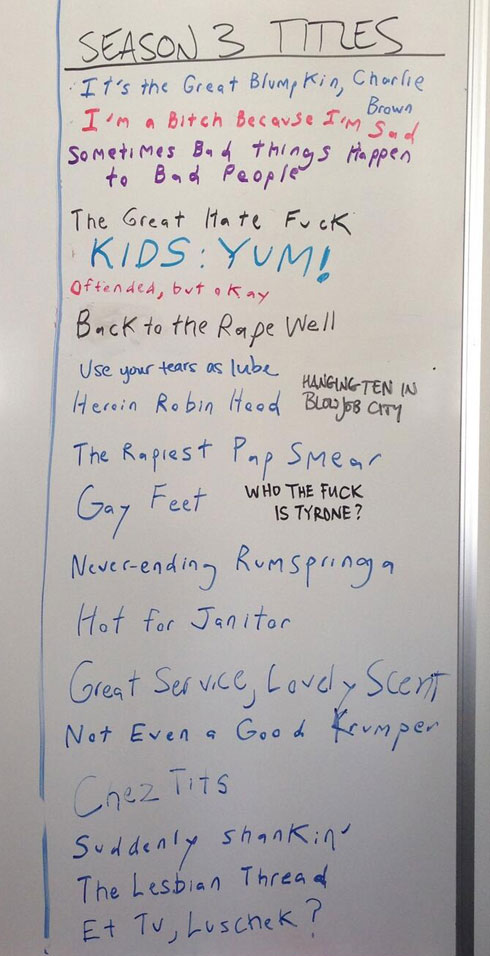 SEASON 3 TITLES
· It's the Great Blumpkin, Charlie
Brown
· I'm a Bitch Because I'm Sad
Sometimes Bad Things Happen
to Bad People
The Great Hate Fuck
KIDS: YUM!
Offended, but okay
Back to the Rape Well
Use your tears as lube
HANGING TEN IN
BLOWJOB CITY
Heroin Robin Hood
The Rapiest Pap Smear
Gay Feet
WHO THE FUCK
IS TYRONE?
Never-ending Rumspringa
Hot for Janitor
Great Service, Lovely Scent
Not Even a Good Krumper
Chez Tits
Suddenly Shankin'
The Lesbian Thread
Et Tu, Luschek?